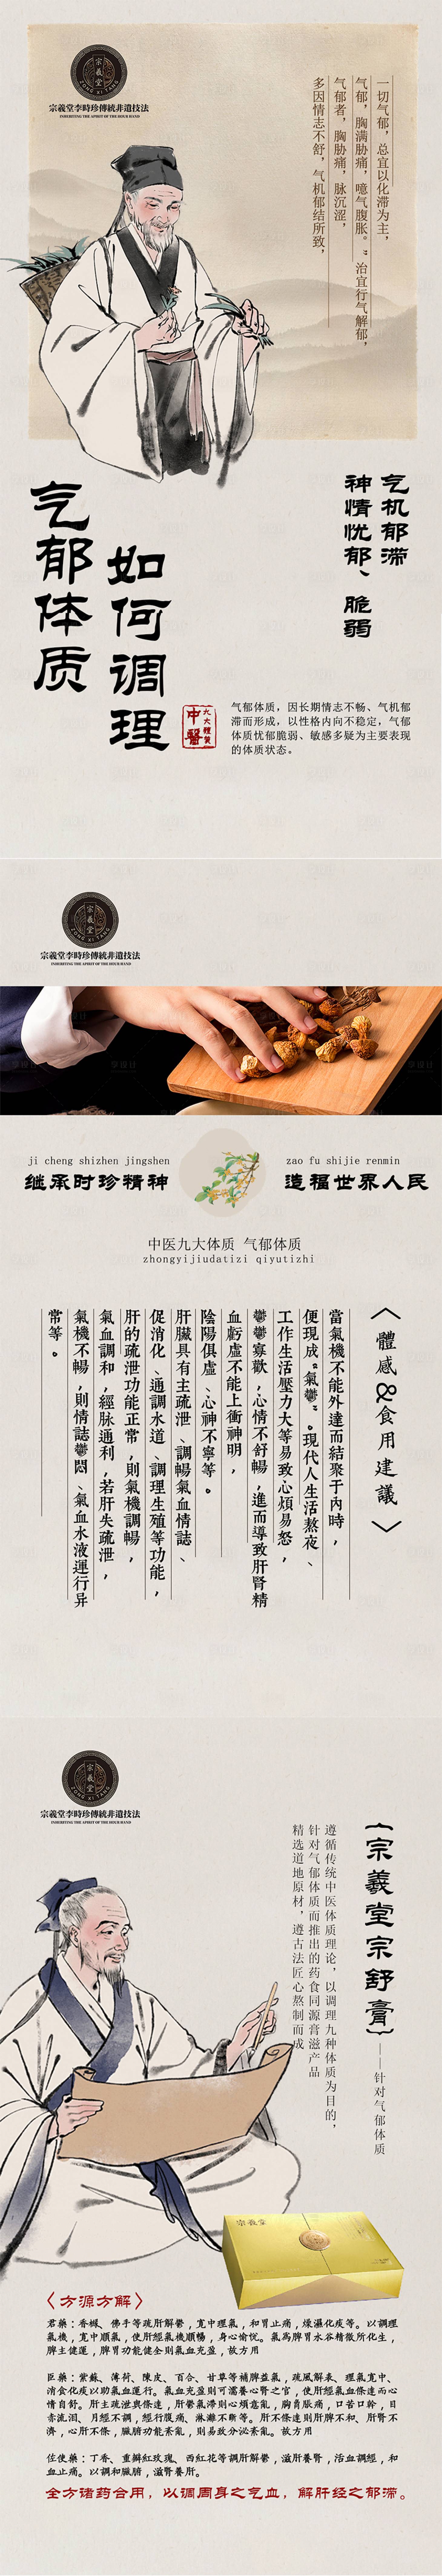 宗義堂
ZONG XI TANG
宗義堂李時珍傳統非遺技法
INHERITING THE APIRIT OF THE HOUR HAND
一切气郁，总宜以化滞为主，
气郁，胸满胁痛，噫气腹胀。”治宜行气解郁，
气郁者，胸胁痛，脉沉涩，
多因情志不舒，气机郁结所致，
气郁体质
如何调理
气机郁滞
神情忧郁、脆弱
九大體質
中醫
气郁体质，因长期情志不畅、气机郁
滞而形成，以性格内向不稳定，气郁
体质忧郁脆弱、敏感多疑为主要表现
的体质状态。
宗義堂
ZONG XI TANG
宗義堂李時珍傳統非遺技法
INHERITING THE APIRIT OF THE HOUR HAND
ji cheng shizhen jingshen
继承时珍精神
zao fu shijie renmin
造福世界人民
中医九大体质 气郁体质
zhongyijiudatizi qiyutizhi
〈體感&食用建議〉
當氣機不能外達而結聚于內時，
便現成“氣鬱”。現代人生活熬夜、
工作生活壓力大等易致心煩易怒，
鬱鬱寡歡，心情不舒暢，進而導致肝腎精
血虧虛不能上衝神明，
陰陽俱虛、心神不寧等。
肝臟具有主疏泄、調暢氣血情誌、
促消化、通調水道、調理生殖等功能，
肝的疏泄功能正常，則氣機調暢，
氣血調和，經脉通利，若肝失疏泄，
氣機不暢，則情誌鬱悶、氣血水液運行异
常等。
宗義堂
ZONG XI TANG
宗義堂李時珍傳統非遺技法
INHERITING THE APIRIT OF THE HOUR HAND
{宗羲堂宗舒膏}——针对气郁体质
遵循传统中医体质理论，以调理九种体质为目的，
针对气郁体质而推出的药食同源膏滋产品
精选道地原材，遵古法匠心熬制而成
宗義堂
〈方源方解〉
君藥：香櫞、佛手等疏肝解鬱，寬中理氣，和胃止痛，燥濕化痰等。以調理
氣機，寬中順氣，使肝經氣機順暢，身心愉悦。氣爲脾胃水谷精微所化生，
脾主健運，脾胃功能健全則氣血充盈，故方用
臣藥：紫蘇、薄荷、陳皮、百合、甘草等補脾益氣，疏風解表、理氣寬中、
消食化痰以助氣血運行。氣血充盈則可濡養心腎之官，使肝經氣血條達而心
情自舒。肝主疏泄與條達，肝鬱氣滯則心煩意亂，胸脅脹痛，口苦口幹，目
赤流泪、月經不調，經行腹痛、淋灕不斷等。肝不條達則肝脾不和、肝腎不
濟，心肝不條，臟腑功能紊亂，則易致分泌紊亂。故方用
佐使藥：丁香、重瓣紅玫瑰、西紅花等調肝解鬱，滋肝養腎，活血調經，和
血止痛。以調和臟腑，滋腎養肝。
全方诸药合用，以调周身之气血，解肝经之郁滞。